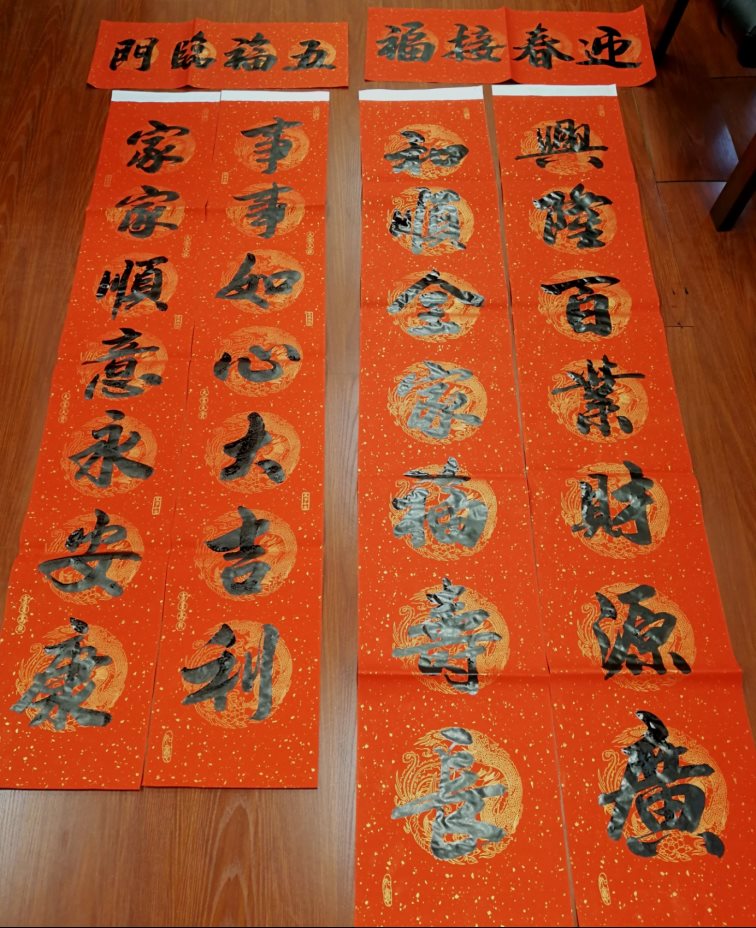 迎春接福
興隆百業財源廣
和順全家福壽長
五福臨門
事事如心大吉利
家家順意永安康